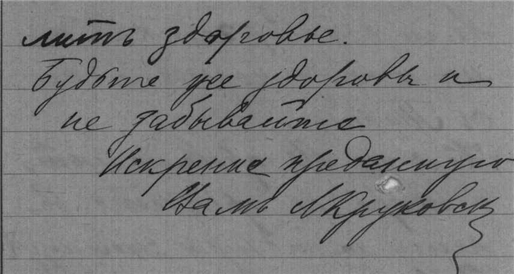 лить здоровье.
Будьте же здоровы и
не забывайте
Искренне преданную
Вамъ ЛКруковск